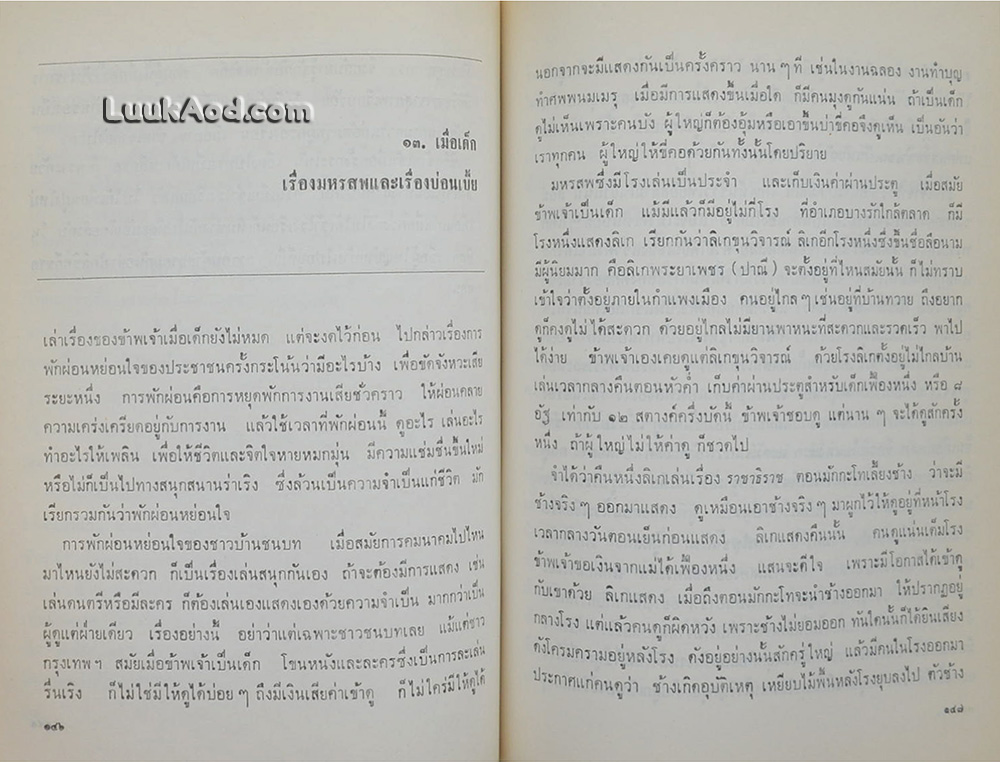 LuukAod.com
๑๓. เมื่อเด็ก
เรื่องมหรสพและเรื่องบ่อนเบี้ย
เล่าเรื่องของข้าพเจ้าเมื่อเด็กยังไม่หมด แต่จะงดไว้ก่อน ไปกล่าวเรื่องการ
พักผ่อนหย่อนใจของประชาชนครั้งกระโน้นว่ามีอะไรบ้าง เพื่อขัดจังหวะเสีย
ระยะหนึ่ง การพักผ่อนคือการหยุดพักการงานเสียชั่วคราว ให้ผ่อนคลาย
ความเคร่งเครียดอยู่กับการงาน แล้วใช้เวลาที่พักผ่อนนี้ ดูอะไร เล่นอะไร
ทำอะไรให้เพลิน เพื่อให้ชีวิตและจิตใจหายหมกมุ่น มีความแช่มชื่นขึ้นใหม่
หรือไม่ก็เป็นไปทางสนุกสนานร่าเริง ซึ่งล้วนเป็นความจำเป็นแก่ชีวิต มัก
เรียกรวมกันว่าพักผ่อนหย่อนใจ
การพักผ่อนหย่อนใจของชาวบ้านชนบท เมื่อสมัยการคมนาคมไปไหน
มาไหนยังไม่สะดวก ก็เป็นเรื่องเล่นสนุกกันเอง ถ้าจะต้องมีการแสดง เช่น
เล่นดนตรีหรือมีละคร ก็ต้องเล่นเองแสดงเองด้วยความจำเป็น มากกว่าเป็น
ผู้ดูแต่ฝ่ายเดียว เรื่องอย่างนี้ อย่าว่าแต่เฉพาะชาวชนบทเลย แม้แต่ชาว
กรุงเทพฯ สมัยเมื่อข้าพเจ้าเป็นเด็ก โขนหนังและละครซึ่งเป็นการละเล่น
รื่นเริง ก็ไม่ใช่มีให้ดูได้บ่อยๆ ถึงมีเงินเสียค่าเข้าดู ก็ไม่ใคร่มีให้ดูได้
๑๔๖
นอกจากจะมีแสดงกันเป็นครั้งคราว นานๆ ที เช่นในงานฉลอง งานทำบุญ
ทำศพพนมเมรุ เมื่อมีการแสดงขึ้นเมื่อใด ก็มีคนมุงดูกันแน่น ถ้าเป็นเด็ก
ดูไม่เห็นเพราะคนบัง ผู้ใหญ่ก็ต้องอุ้มหรือเอาขึ้นบ่าขี่คอจึงดูเห็น เป็นอันว่า
เราทุกคน ผู้ใหญ่ให้ขี่คอด้วยกันทั้งนั้นโดยปริยาย
มหรสพซึ่งมีโรงเล่นเป็นประจำ และเก็บเงินค่าผ่านประตู เมื่อสมัย
ข้าพเจ้าเป็นเด็ก แม้มีแล้วก็มีอยู่ไม่กี่โรง ที่อำเภอบางรักใกล้ตลาด ก็มี
โรงหนึ่งแสดงลิเก เรียกกันว่าลิเกขุนวิจารณ์ ลิเกอีกโรงหนึ่งซึ่งขึ้นชื่อลือนาม
มีผู้นิยมมาก คือลิเกพระยาเพชร (ปาณี) จะตั้งอยู่ที่ไหนสมัยนั้น ก็ไม่ทราบ
เข้าใจว่าตั้งอยู่ภายในกำแพงเมือง คนอยู่ไกลๆ เช่นอยู่ที่บ้านทวาย ถึงอยาก
ดูก็คงดูไม่ได้สะดวก ด้วยอยู่ไกลไม่มียานพาหนะที่สะดวกและรวดเร็ว พาไป
ได้ง่าย ข้าพเจ้าเองเคยดูแต่ลิเกขุนวิจารณ์ ด้วยโรงลิเกตั้งอยู่ไม่ไกลบ้าน
เล่นเวลากลางคืนตอนหัวค่ำ เก็บค่าผ่านประตูสำหรับเด็กเฟื้องหนึ่ง หรือ ๘
อัฐ เท่ากับ ๑๒ สตางค์ครึ่งบัดนี้ ข้าพเจ้าชอบดู แต่นานๆ จะได้ดูสักครั้ง
หนึ่ง ถ้าผู้ใหญ่ไม่ให้ค่าดู ก็ชวดไป
จำได้ว่าคืนหนึ่งลิเกเล่นเรื่อง ราชาธิราช ตอนมักกะโทเลี้ยงช้าง ว่าจะมี
ช้างจริงๆ ออกมาแสดง ดูเหมือนเอาช้างจริงๆ มาผูกไว้ให้ดูอยู่ที่หน้าโรง
เวลากลางวันตอนเย็นก่อนแสดง ลิเกแสดงคืนนั้น คนดูแน่นเต็มโรง
ข้าพเจ้าขอเงินจากแม่ได้เฟื้องหนึ่ง แสนจะดีใจ เพราะมีโอกาสได้เข้าดู
กับเขาด้วย ลิเกแสดง เมื่อถึงตอนมักกะโทจะนำช้างออกมา ให้ปรากฏอยู่
กลางโรง แต่แล้วคนดูก็ผิดหวัง เพราะช้างไม่ยอมออก ทันใดนั้นก็ได้ยินเสียง
ดังโครมครามอยู่หลังโรง ดังอยู่อย่างนั้นสักครู่ใหญ่ แล้วมีคนในโรงออกมา
ประกาศแก่คนดูว่า ช้างเกิดอุบัติเหตุ เหยียบไม้พื้นหลังโรงยุบลงไป ตัวช้าง
๑๔๗